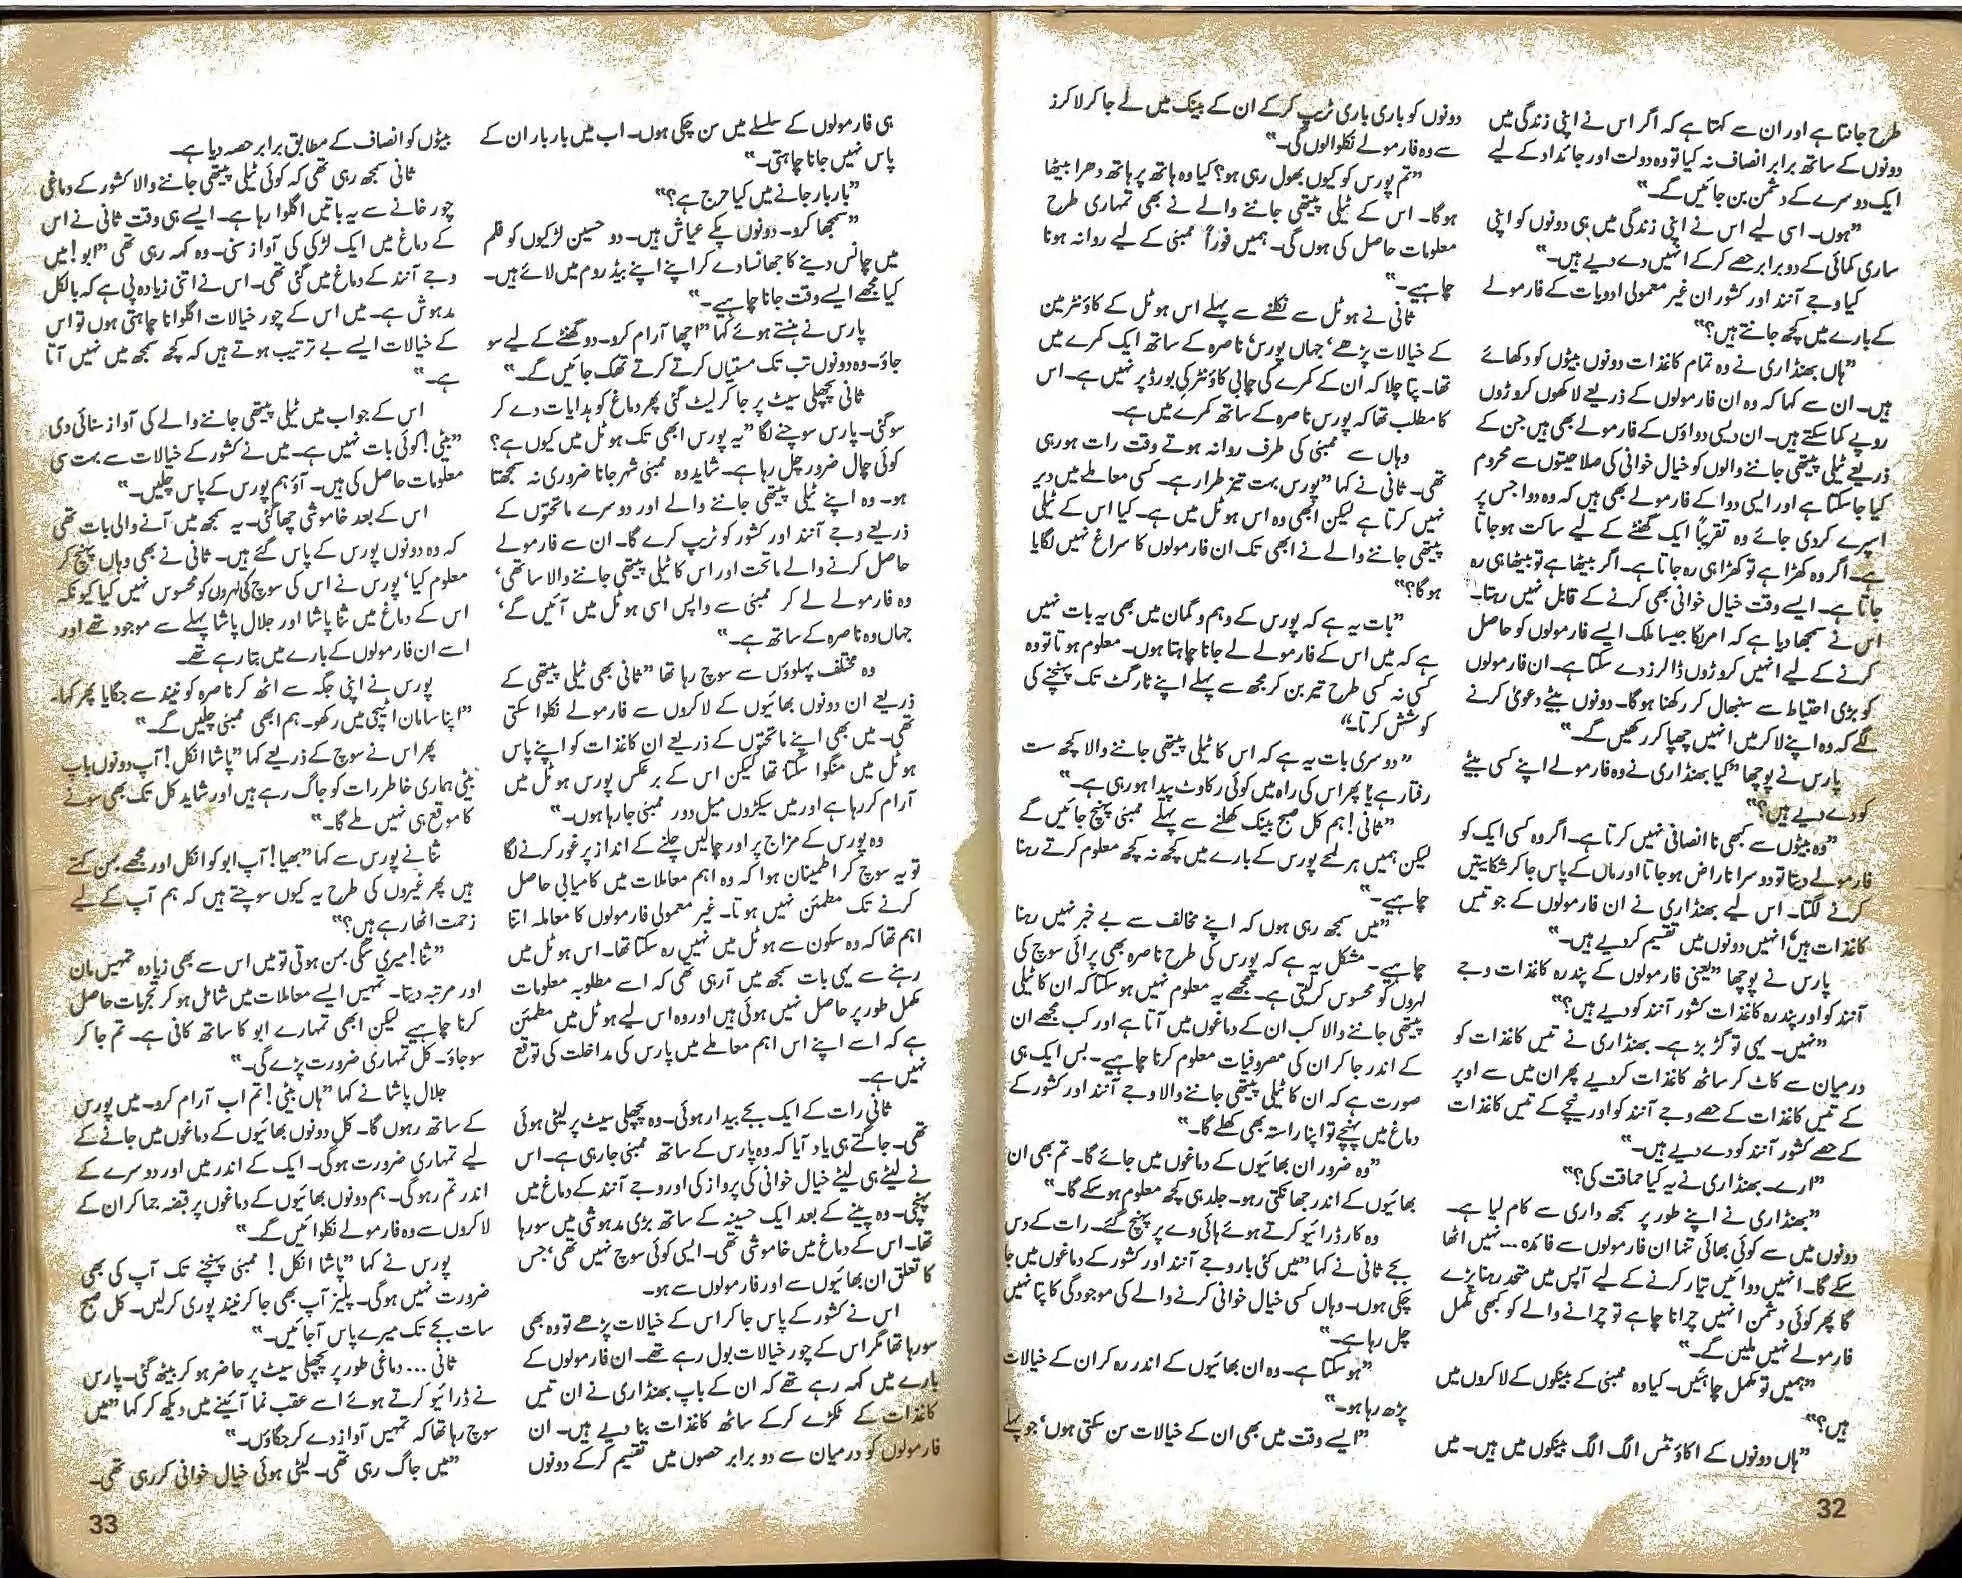 طرح جانتا ہے اور ان سے کہتا ہے کہ اگر اس نے اپنی زندگی میں
دونوں کے ساتھ برابر انصاف نہ کیا تو وہ دولت اور جائداد کے لیے
ایک دوسرے کے دشمن بن جائیں گے۔"
"ہوں۔ اسی لیے اس نے اپنی زندگی میں ہی دونوں کو اپنی
ساری کمائی کے دو برابر حصے کر کے انہیں دے دیے ہیں۔"
کیا وجے آنند اور کشور ان غیر معمولی ادویات کے فارمولے
کے بارے میں کچھ جانتے ہیں؟"
"ہاں بھنڈاری نے وہ تمام کاغذات دونوں بیٹوں کو دکھائے
ہیں۔ ان سے کہا کہ وہ ان فارمولوں کے ذریعے لاکھوں کروڑوں
روپے کما سکتے ہیں۔ ان دیسی دواؤں کے فارمولے بھی ہیں جن کے
ذریعے ٹیلی پیتھی جاننے والوں کو خیال خوانی کی صلاحیتوں سے محروم
کیا جا سکتا ہے اور ایسی دوا کے فارمولے بھی ہیں کہ وہ دوا جس پر
اسپرے کر دی جائے وہ تقریباً ایک گھنٹے کے لیے ساکت ہو جاتا
ہے۔ اگر وہ کھڑا ہے تو کھڑا ہی رہ جاتا ہے۔ اگر بیٹھا ہے تو بیٹھا ہی رہ
جاتا ہے۔ ایسے وقت خیال خوانی بھی کرنے کے قابل نہیں رہتا۔
اس نے سمجھا دیا ہے کہ امریکا جیسا ملک ایسے فارمولوں کو حاصل
کرنے کے لیے انہیں کروڑوں ڈالرز دے سکتا ہے۔ ان فارمولوں
کو بڑی احتیاط سے سنبھال کر رکھنا ہوگا۔ دونوں بیٹے دعویٰ کرنے
لگے کہ وہ اپنے لاکر میں انہیں چھپا کر رکھیں گے۔"
پارس نے پوچھا "کیا بھنڈاری نے وہ فارمولے اپنے کسی بیٹے
کو دے دیے ہیں؟"
"وہ بیٹوں سے کبھی نا انصافی نہیں کرتا ہے۔ اگر وہ کسی ایک کو
فارمولے دیتا تو دوسرا ناراض ہو جاتا اور ماں کے پاس جا کر شکایتیں
کرنے لگتا۔ اس لیے بھنڈاری نے ان فارمولوں کے جو تیس
کاغذات ہیں' انہیں دونوں میں تقسیم کر دیے ہیں۔"
پارس نے پوچھا "یعنی فارمولوں کے پندرہ کاغذات وجے
آنند کو اور پندرہ کاغذات کشور آنند کو دیے ہیں؟"
"نہیں۔ یہی تو گڑ بڑ ہے۔ بھنڈاری نے تیس کاغذات کو
درمیان سے کاٹ کر ساٹھ کاغذات کر دیے پھر ان میں سے اوپر
کے تیس کاغذات کے حصے وجے آنند کو اور نیچے کے تیس کاغذات
کے حصے کشور آنند کو دے دیے ہیں۔"
"ارے۔ بھنڈاری نے یہ کیا حماقت کی؟"
"بھنڈاری نے اپنے طور پر سمجھ داری سے کام لیا ہے۔
دونوں میں سے کوئی بھائی تنہا ان فارمولوں سے فائدہ... نہیں اٹھا
سکے گا۔ انہیں دوائیں تیار کرنے کے لیے آپس میں متحد رہنا پڑے
گا پھر کوئی دشمن انہیں چرانا چاہے تو چرانے والے کو کبھی مکمل
فارمولے نہیں ملیں گے۔"
"ہمیں تو مکمل چاہئیں۔ کیا وہ ممبئی کے بینکوں کے لاکروں میں
ہیں؟"
"ہاں دونوں کے اکاؤنٹس الگ الگ بینکوں میں ہیں۔ میں
دونوں کو باری باری ٹریپ کر کے ان کے بینک میں لے جا کر لاکرز
سے وہ فارمولے نکلوا لوں گی۔"
"تم پورس کو کیوں بھول رہی ہو؟ کیا وہ ہاتھ پر ہاتھ دھرا بیٹھا
ہوگا۔ اس کے ٹیلی پیتھی جاننے والے نے بھی تمہاری طرح
معلومات حاصل کی ہوں گی۔ ہمیں فوراً ممبئی کے لیے روانہ ہونا
چاہیے۔"
ثانی نے ہوٹل سے نکلنے سے پہلے اس ہوٹل کے کاؤنٹر مین
کے خیالات پڑھے' جہاں پورس' ناصرہ کے ساتھ ایک کمرے میں
تھا۔ پتا چلا کہ ان کے کمرے کی چابی کاؤنٹر کی بورڈ پر نہیں ہے۔ اس
کا مطلب تھا کہ پورس ناصرہ کے ساتھ کمرے میں ہے۔
وہاں سے ممبئی کی طرف روانہ ہوتے وقت رات ہو رہی
تھی۔ ثانی نے کہا "پورس بہت تیز طرار ہے۔ کسی معاملے میں دیر
نہیں کرتا ہے لیکن ابھی وہ اس ہوٹل میں ہے۔ کیا اس کے ٹیلی
پیتھی جاننے والے نے ابھی تک ان فارمولوں کا سراغ نہیں لگایا
ہوگا؟"
"بات یہ ہے کہ پورس کے وہم و گمان میں بھی یہ بات نہیں
ہے کہ میں اس کے فارمولے لے جانا چاہتا ہوں۔ معلوم ہوتا تو وہ
کسی نہ کسی طرح تیر بن کر مجھ سے پہلے اپنے ٹارگٹ تک پہنچنے کی
کوشش کرتا۔"
"دوسری بات یہ ہے کہ اس کا ٹیلی پیتھی جاننے والا کچھ سست
رفتار ہے یا پھر اس کی راہ میں کوئی رکاوٹ پیدا ہو رہی ہے۔"
"ثانی! ہم کل صبح بینک کھلنے سے پہلے ممبئی پہنچ جائیں گے
لیکن ہمیں ہر لمحے پورس کے بارے میں کچھ نہ کچھ معلوم کرتے رہنا
چاہیے۔"
"میں سمجھ رہی ہوں کہ اپنے مخالف سے بے خبر نہیں رہنا
چاہیے۔ مشکل یہ ہے کہ پورس کی طرح ناصرہ بھی پرائی سوچ کی
لہروں کو محسوس کر لیتی ہے۔ مجھے یہ معلوم نہیں ہو سکتا کہ ان کا ٹیلی
پیتھی جاننے والا کب ان کے دماغوں میں آتا ہے اور کب مجھے ان
کے اندر جا کر ان کی مصروفیات معلوم کرنا چاہیے۔ بس ایک ہی
صورت ہے کہ ان کا ٹیلی پیتھی جاننے والا وجے آنند اور کشور کے
دماغ میں پہنچے تو اپنا راستہ بھی کھلے گا۔"
"وہ ضرور ان بھائیوں کے دماغوں میں جائے گا۔ تم بھی ان
بھائیوں کے اندر جھانکتی رہو۔ جلد ہی کچھ معلوم ہو سکے گا۔"
وہ کار ڈرائیو کرتے ہوئے ہائی وے پر پہنچ گئے۔ رات کے دس
بجے ثانی نے کہا "میں کئی بار وجے آنند اور کشور کے دماغوں میں جا
چکی ہوں۔ وہاں کسی خیال خوانی کرنے والے کی موجودگی کا پتا نہیں
چل رہا ہے۔"
"ہو سکتا ہے۔ وہ ان بھائیوں کے اندر رہ کر ان کے خیالات
پڑھ رہا ہو۔"
"ایسے وقت میں بھی ان کے خیالات سن سکتی ہوں' جو پہلے
32
ہی فارمولوں کے سلسلے میں سن چکی ہوں۔ اب میں بار بار ان کے
پاس نہیں جانا چاہتی۔"
"بار بار جانے میں کیا حرج ہے؟"
"سمجھا کرو۔ دونوں پکے عیاش ہیں۔ دو حسین لڑکیوں کو فلم
میں چانس دینے کا جھانسا دے کر اپنے اپنے بیڈ روم میں لائے ہیں۔
کیا مجھے ایسے وقت جانا چاہیے۔"
پارس نے ہنستے ہوئے کہا "اچھا آرام کرو۔ دو گھنٹے کے لیے سو
جاؤ۔ وہ دونوں تب تک مستیاں کرتے کرتے تھک جائیں گے۔"
ثانی پچھلی سیٹ پر جا کر لیٹ گئی پھر دماغ کو ہدایات دے کر
سو گئی۔ پارس سوچنے لگا "یہ پورس ابھی تک ہوٹل میں کیوں ہے؟
کوئی چال ضرور چل رہا ہے۔ شاید وہ ممبئی شہر جانا ضروری نہ سمجھتا
ہو۔ وہ اپنے ٹیلی پیتھی جاننے والے اور دوسرے ماتحتوں کے
ذریعے وجے آنند اور کشور کو ٹریپ کرے گا۔ ان سے فارمولے
حاصل کرنے والے ماتحت اور اس کا ٹیلی پیتھی جاننے والا ساتھی'
وہ فارمولے لے کر ممبئی سے واپس اسی ہوٹل میں آئیں گے'
جہاں وہ ناصرہ کے ساتھ ہے۔"
وہ مختلف پہلوؤں سے سوچ رہا تھا "ثانی بھی ٹیلی پیتھی کے
ذریعے ان دونوں بھائیوں کے لاکروں سے فارمولے نکلوا سکتی
تھی۔ میں بھی اپنے ماتحتوں کے ذریعے ان کاغذات کو اپنے پاس
ہوٹل میں منگوا سکتا تھا لیکن اس کے برعکس پورس ہوٹل میں
آرام کر رہا ہے اور میں سیکڑوں میل دور ممبئی جا رہا ہوں۔"
وہ پورس کے مزاج پر اور چالیں چلنے کے انداز پر غور کرنے لگا
تو یہ سوچ کر اطمینان ہوا کہ وہ اہم معاملات میں کامیابی حاصل
کرنے تک مطمئن نہیں ہوتا۔ غیر معمولی فارمولوں کا معاملہ اتنا
اہم تھا کہ وہ سکون سے ہوٹل میں نہیں رہ سکتا تھا۔ اس ہوٹل میں
رہنے سے یہی بات سمجھ میں آ رہی تھی کہ اسے مطلوبہ معلومات
مکمل طور پر حاصل نہیں ہوئی ہیں اور وہ اس لیے ہوٹل میں مطمئن
ہے کہ اسے اپنے اس اہم معاملے میں پارس کی مداخلت کی توقع
نہیں ہے۔
ثانی رات کے ایک بجے بیدار ہوئی۔ وہ پچھلی سیٹ پر لیٹی ہوئی
تھی۔ جاگتے ہی یاد آیا کہ وہ پارس کے ساتھ ممبئی جا رہی ہے۔ اس
نے لیٹے ہی لیٹے خیال خوانی کی پرواز کی اور وجے آنند کے دماغ میں
پہنچی۔ وہ پینے کے بعد ایک حسینہ کے ساتھ بڑی مدہوشی میں سو رہا
تھا۔ اس کے دماغ میں خاموشی تھی۔ ایسی کوئی سوچ نہیں تھی' جس
کا تعلق ان بھائیوں سے اور فارمولوں سے ہو۔
اس نے کشور کے پاس جا کر اس کے خیالات پڑھے تو وہ بھی
سو رہا تھا مگر اس کے چور خیالات بول رہے تھے۔ ان فارمولوں کے
بارے میں کہہ رہے تھے کہ ان کے باپ بھنڈاری نے ان تیس
کاغذات کے ٹکڑے کر کے ساٹھ کاغذات بنا دیے ہیں۔ ان
فارمولوں کو درمیان سے دو برابر حصوں میں تقسیم کر کے دونوں
بیٹوں کو انصاف کے مطابق برابر حصہ دیا ہے۔
ثانی سمجھ رہی تھی کہ کوئی ٹیلی پیتھی جاننے والا کشور کے دماغی
چور خانے سے یہ باتیں اگلوا رہا ہے۔ ایسے ہی وقت ثانی نے اس
کے دماغ میں ایک لڑکی کی آواز سنی۔ وہ کہہ رہی تھی "ابو! میں
وجے آنند کے دماغ میں گئی تھی۔ اس نے اتنی زیادہ پی ہے کہ بالکل
مدہوش ہے۔ میں اس کے چور خیالات اگلوانا چاہتی ہوں تو اس
کے خیالات ایسے بے ترتیب ہوتے ہیں کہ کچھ سمجھ میں نہیں آتا
ہے۔"
اس کے جواب میں ٹیلی پیتھی جاننے والے کی آواز سنائی دی
"بیٹی! کوئی بات نہیں ہے۔ میں نے کشور کے خیالات سے بہت سی
معلومات حاصل کی ہیں۔ آؤ ہم پورس کے پاس چلیں۔"
اس کے بعد خاموشی چھا گئی۔ یہ سمجھ میں آنے والی بات تھی
کہ وہ دونوں پورس کے پاس گئے ہیں۔ ثانی نے بھی وہاں پہنچ کر
معلوم کیا' پورس نے اس کی سوچ کی لہروں کو محسوس نہیں کیا کیونکہ
اس کے دماغ میں ثنا پاشا اور جلال پاشا پہلے سے موجود تھے اور
اسے ان فارمولوں کے بارے میں بتا رہے تھے۔
پورس نے اپنی جگہ سے اٹھ کر ناصرہ کو نیند سے جگایا پھر کہا۔
"اپنا سامان اٹیچی میں رکھو۔ ہم ابھی ممبئی چلیں گے۔"
پھر اس نے سوچ کے ذریعے کہا "پاشا انکل! آپ دونوں باپ
بیٹی ہماری خاطر رات کو جاگ رہے ہیں اور شاید کل تک بھی سونے
کا موقع ہی نہیں ملے گا۔"
ثنا نے پورس سے کہا "بھیا! آپ ابو کو انکل اور مجھے بہن کہتے
ہیں پھر غیروں کی طرح یہ کیوں سوچتے ہیں کہ ہم آپ کے لیے
زحمت اٹھا رہے ہیں؟"
"ثنا! میری سگی بہن ہوتی تو میں اس سے بھی زیادہ تمہیں مان
اور مرتبہ دیتا۔ تمہیں ایسے معاملات میں شامل ہو کر تجربات حاصل
کرنا چاہیے لیکن ابھی تمہارے ابو کا ساتھ کافی ہے۔ تم جا کر
سو جاؤ۔ کل تمہاری ضرورت پڑے گی۔"
جلال پاشا نے کہا "ہاں بیٹی! تم اب آرام کرو۔ میں پورس
کے ساتھ رہوں گا۔ کل دونوں بھائیوں کے دماغوں میں جانے کے
لیے تمہاری ضرورت ہوگی۔ ایک کے اندر میں اور دوسرے کے
اندر تم رہو گی۔ ہم دونوں بھائیوں کے دماغوں پر قبضہ جما کر ان کے
لاکروں سے وہ فارمولے نکلوائیں گے۔"
پورس نے کہا "پاشا انکل! ممبئی پہنچنے تک آپ کی بھی
ضرورت نہیں ہوگی۔ پلیز آپ بھی جا کر نیند پوری کر لیں۔ کل صبح
سات بجے تک میرے پاس آ جائیں۔"
ثانی... دماغی طور پر پچھلی سیٹ پر حاضر ہو کر بیٹھ گئی۔ پارس
نے ڈرائیو کرتے ہوئے اسے عقب نما آئینے میں دیکھ کر کہا "میں
سوچ رہا تھا کہ تمہیں آواز دے کر جگاؤں۔"
"میں جاگ رہی تھی۔ لیٹی ہوئی خیال خوانی کر رہی تھی۔
33